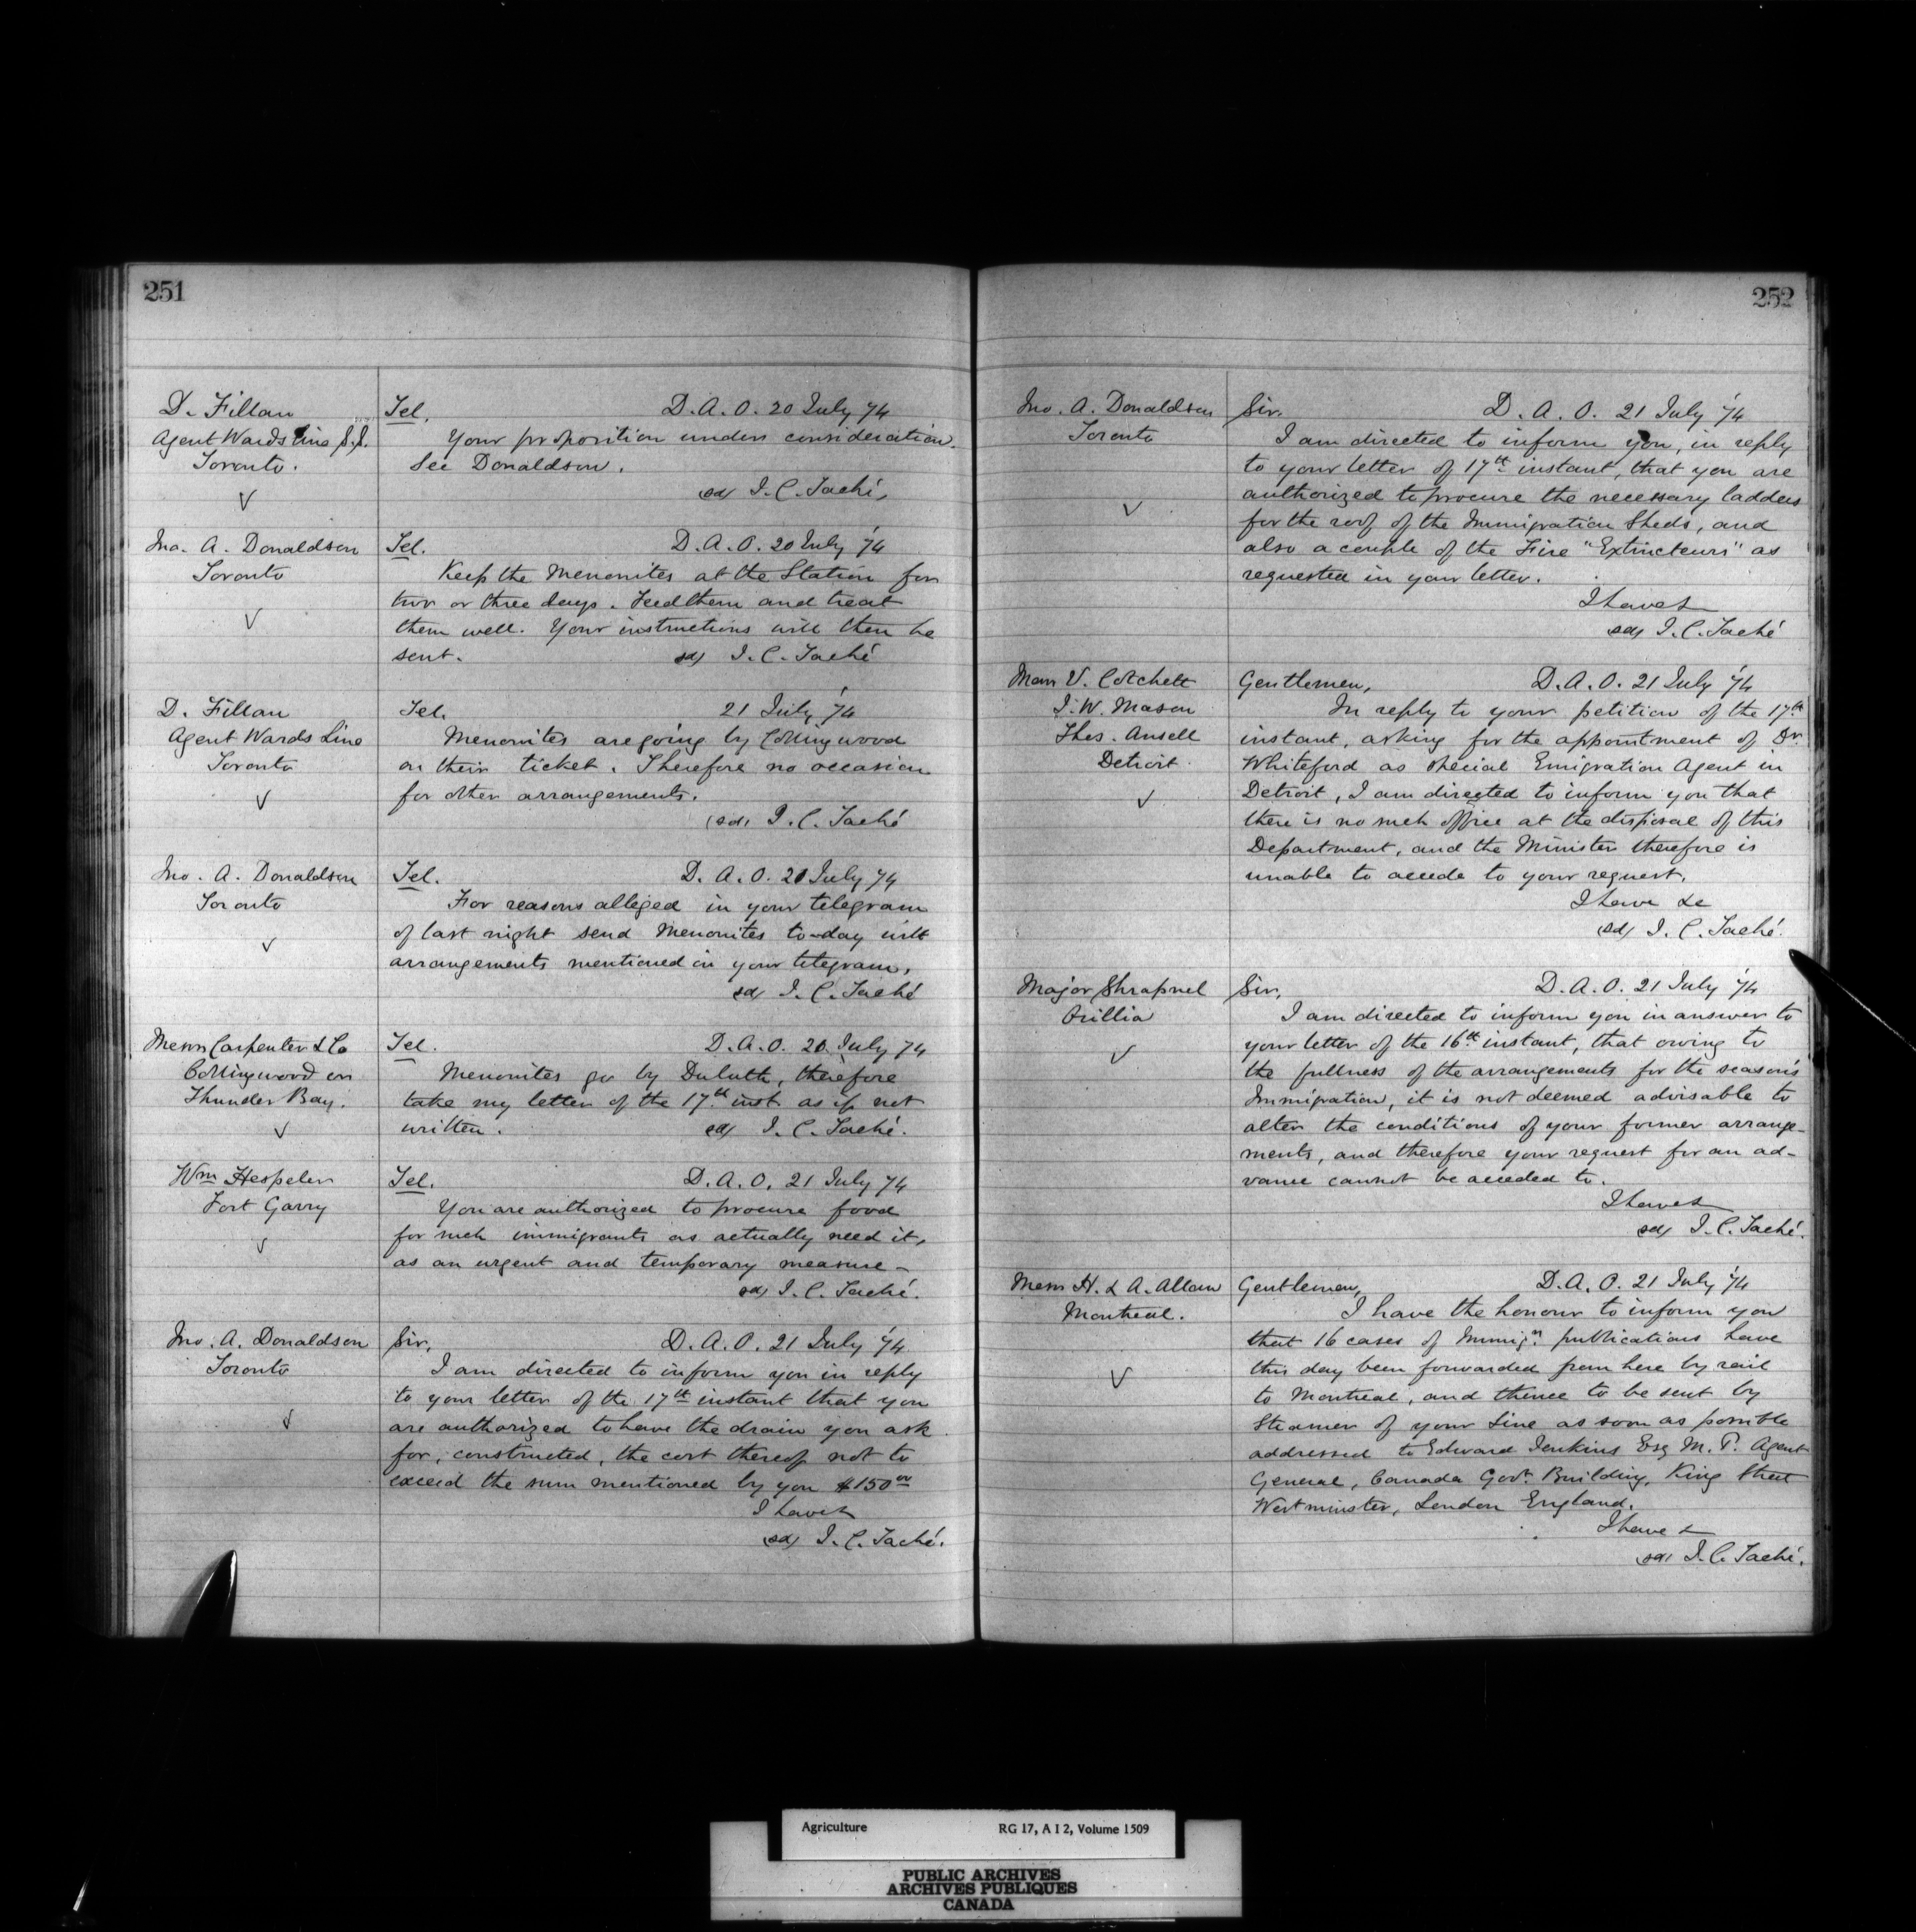 251
D. Fillan
Agent Wards Line S.S.
Toronto.
Tel. D.A.O. 20 July 74
Your proposition under consideration.
See Donaldson.
(sd) J.C. Taché,
Jno. A. Donaldson
Toronto
Tel. D.A.O. 20 July '74
Keep the Menonites at the Station for
two or three days. Feed them and treat
them well. Your instructions will then be
sent. (sd) J.C. Taché
D. Fillan
Agent Wards Line
Toronto
Tel. 21 July '74
Menonites are going by Collingwood
on their ticket. Therefore no occasion
for other arrangements.
(sd) J.C. Taché
Jno. A. Donaldson
Toronto
Tel. D.A.O. 21 July 74
For reasons alleged in your telegram
of last night send Menonites to-day with
arrangements mentioned in your telegram.
(sd) J.C. Taché
Messrs Carpenter & Co
Collingwood on
Thunder Bay.
Tel. D.A.O. 20 July 74
Menonites go by Duluth, therefore
take my letter of the 17th inst. as if not
written. (sd) J.C. Taché.
Wm Hespeler
Fort Garry
Tel. D.A.O. 21 July 74
You are authorized to procure food
for such immigrants as actually need it,
as an urgent and temporary measure -
(sd) J.C. Taché.
Jno. A. Donaldson
Toronto
Sir, D.A.O. 21 July '74
I am directed to inform you in reply
to your letter of the 17th instant that you
are authorized to have the drain you ask
for, constructed, the cost thereof not to
exceed the sum mentioned by you $150 00
I have &
(sd) J.C. Taché.
252
Jno. A. Donaldson
Toronto
Sir. D.A.O. 21 July '74
I am directed to inform you, in reply
to your letter of 17th instant, that you are
authorized to procure the necessary ladders
for the roof of the Immigration Sheds, and
also a couple of the Fire "Extincteurs" as
requested in your letter.
I have &
(sd) J.C. Taché
Messrs V. Cotchett
J.W. Mason
Thos. Ansell
Detroit.
Gentlemen, D.A.O. 21 July '74
In reply to your petition of the 17th
instant, asking for the appointment of Dr.
Whiteford as special Emigration Agent in
Detroit, I am directed to inform you that
there is no such office at the disposal of this
Department, and the Minister therefore is
unable to accede to your request.
I have &c
(sd) J.C. Taché.
Major Shrapnel
Orillia
Sir, D.A.O. 21 July '74
I am directed to inform you in answer to
your letter of the 16th instant, that owing to
the fullness of the arrangements for the season's
Immigration, it is not deemed advisable to
alter the conditions of your former arrange-
ments, and therefore your request for an ad-
vance cannot be acceded to.
I have &
(sd) J.C. Taché.
Messrs H. & A. Allan
Montreal.
Gentlemen, D.A.O. 21 July '74
I have the honour to inform you
that 16 cases of Immign. publications have
this day been forwarded from here by rail
to Montreal, and thence to be sent by
Steamer of your Line as soon as possible
addressed to Edward Jenkins Esq M.P. Agent
General, Canada Govt. Building, King Street
Westminster, London England.
I have &
(sd) J.C. Taché.
Agriculture RG 17, A I 2, Volume 1509
PUBLIC ARCHIVES
ARCHIVES PUBLIQUES
CANADA